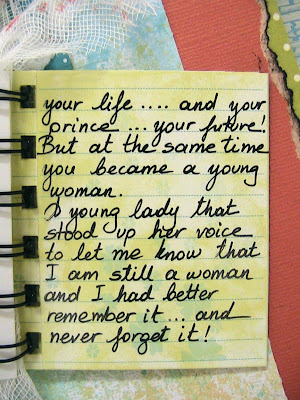 your life .... and your
prince ... your future!
But at the same time
you became a young
woman.
A young lady that
stood up her voice
to let me know that
I am still a woman
and I had better
remember it ... and
never forget it!